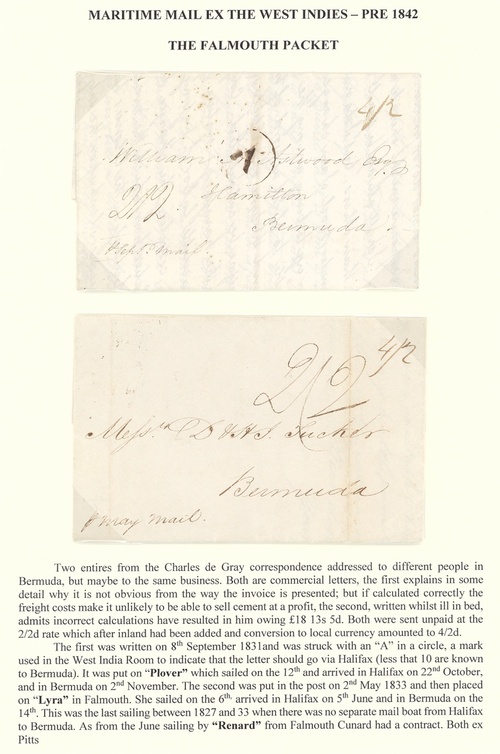 MARITIME MAIL EX THE WEST INDIES – PRE 1842
THE FALMOUTH PACKET
4/2
A
William Astwood Esq
2/2
Hamilton
Bermuda
p Septr Mail.
4/2
2/2
Messrs D & H J. Tucker
Bermuda
p May Mail.
Two entires from the Charles de Gray correspondence addressed to different people in
Bermuda, but maybe to the same business. Both are commercial letters, the first explains in some
detail why it is not obvious from the way the invoice is presented; but if calculated correctly the
freight costs make it unlikely to be able to sell cement at a profit, the second, written whilst ill in bed,
admits incorrect calculations have resulted in him owing £18 13s 5d. Both were sent unpaid at the
2/2d rate which after inland had been added and conversion to local currency amounted to 4/2d.
The first was written on 8th September 1831and was struck with an “A” in a circle, a mark
used in the West India Room to indicate that the letter should go via Halifax (less that 10 are known
to Bermuda). It was put on “Plover” which sailed on the 12th and arrived in Halifax on 22nd October,
and in Bermuda on 2nd November. The second was put in the post on 2nd May 1833 and then placed
on “Lyra” in Falmouth. She sailed on the 6th, arrived in Halifax on 5th June and in Bermuda on the
14th. This was the last sailing between 1827 and 33 when there was no separate mail boat from Halifax
to Bermuda. As from the June sailing by “Renard” from Falmouth Cunard had a contract. Both ex
Pitts